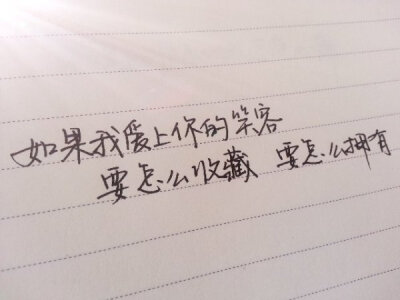 如果我爱上你的笑容
要怎么收藏 要怎么拥有